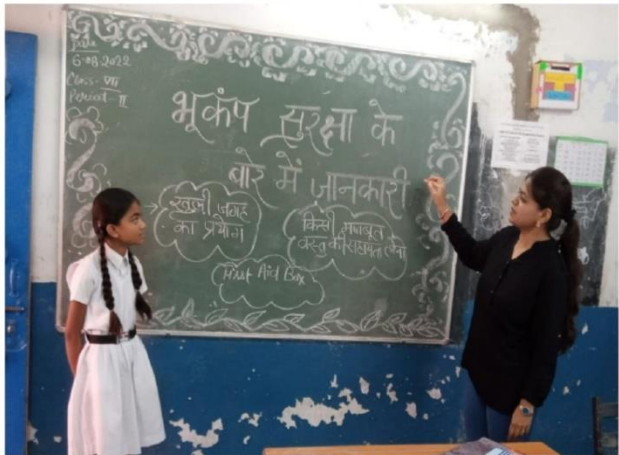 Date
6-08-2022
Class- VII
Period- II
भूकंप सुरक्षा के
बारे में जानकारी
खुली जगह
का प्रयोग
किसी मजबूत
वस्तु की सहायता लेना
First Aid Box